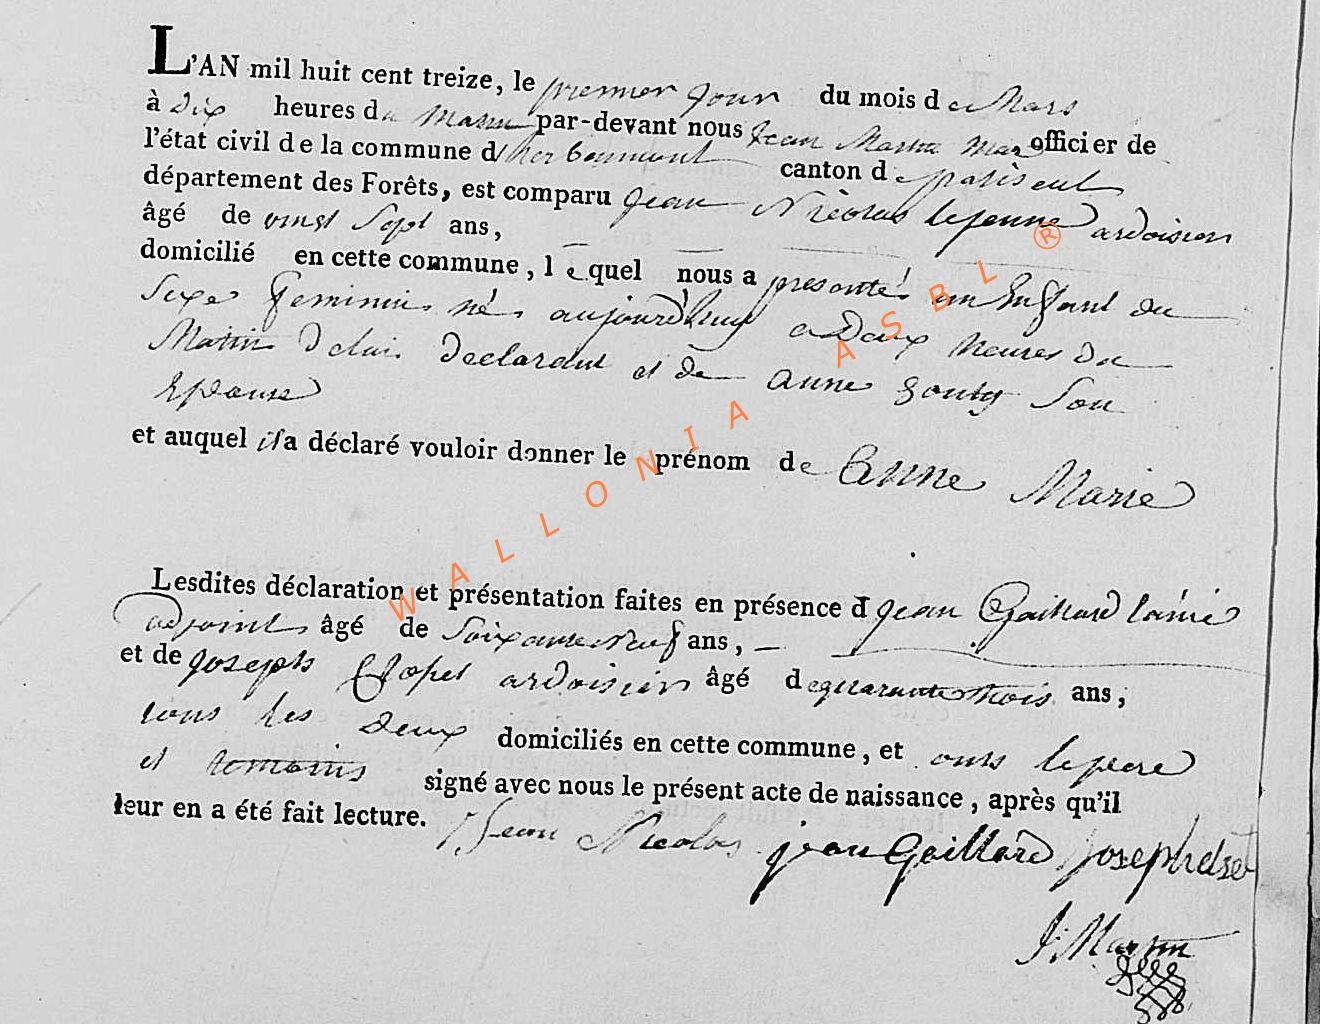 L'AN mil huit cent treize, le premier jour du mois de Mars
à dix heures du Matin par-devant nous Jean Martin officier de
l'état civil de la commune d'herbeumont canton de paliseul
département des Forêts, est comparu Jean Nicolas lejeune ardoisier
âgé de vingt Sept ans,
domicilié en cette commune, lequel nous a presenté un Enfant du
Sexe feminin né aujourd'huy a Deux heures du
Matin delui declarant et de anne gouty Son
Epouse
et auquel il a déclaré vouloir donner le prénom de anne Marie
Lesdites déclaration et présentation faites en présence d jean Gaillard lainé
adjoint âgé de Soixante neuf ans,
et de joseph ardoisier âgé de quarante trois ans,
tous les deux domiciliés en cette commune, et onts le pere
et temoins signé avec nous le présent acte de naissance, après qu'il
leur en a été fait lecture. Jean Nicolas jean Gaillard joseph
J: Martin
WALLONIA ASBL ®